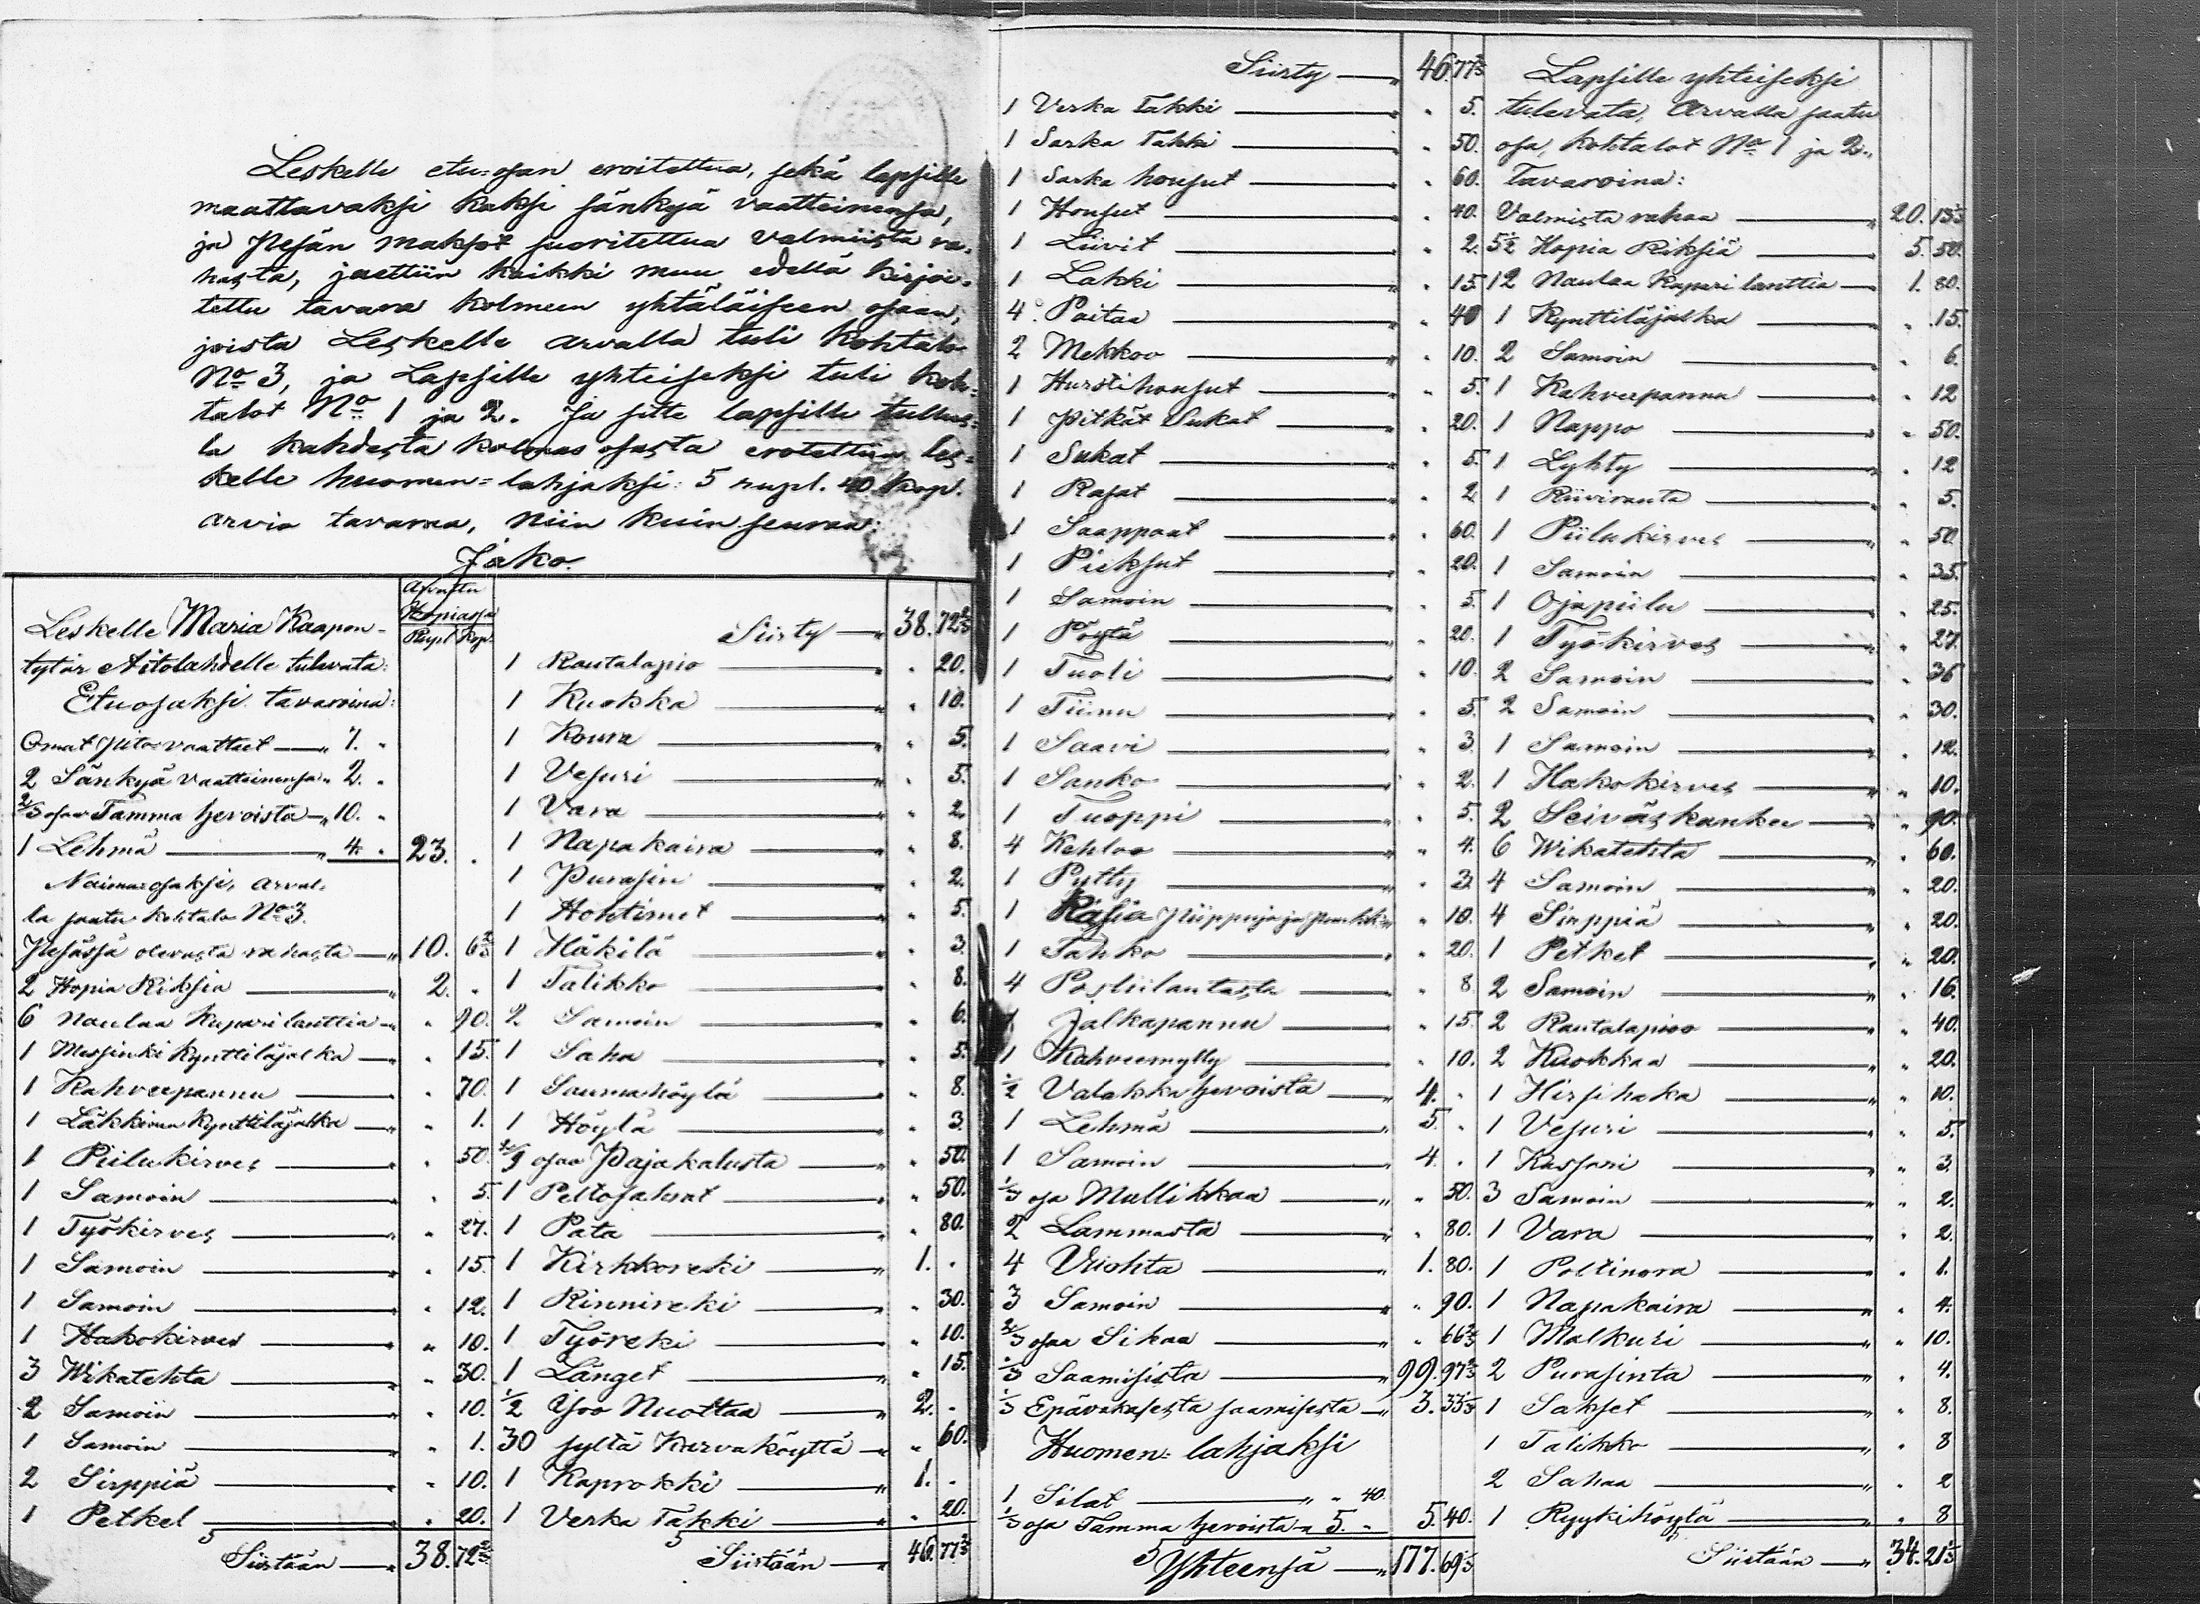 Leskelle etu=osan eroitettua, sekä lapsille
maattavaksi kaksi sänkyä vaatteinensa,
ja Pesän maksot suoritettua valmiista ra-
hasta, jaettiin kaikki muu edellä kirjoi-
tettu tavara kolmeen yhtäläiseen osaan,
joista Leskelle arvalla tuli kohtalo
No 3, ja Lapsille yhteiseksi tuli koh-
talot No 1 ja 2. Ja sitte lapsille tullus-
ta kahdesta kolmas osasta erotettiin les-
kelle huomen=lahjaksi: 5 rupl. 40 kop.
arvio tavaraa, niin kuin seuraa:
Jako.
Arvattu
Hopiassa
Rupl Kop.
Leskelle Maria Kaapon-
tytär Aitolahdelle tulevata:
Etuosaksi tavaroina:
Omat pito=vaatteet — „ 7. „
2 Sänkyä vaatteinensa „ 2. „
2/3 osaa Tamma hevoista — „ 10. „
1 Lehmä — „ 4. „ 23. „
Naima=osaksi, arval-
la saatu kohtalo No 3.
Pesässä olevasta rahasta — „ 10. 6 2/3
2 Hopia Riksiä — „ 2. „
6 Naulaa Kuparilanttia — „ „ 90.
1 Messinki kynttiläjalka — „ „ 15.
1 Kahveepannu — „ „ 70.
1 Läkkinen kynttiläjalka — „ „ 1.
1 Piilukirves — „ „ 50.
1 Samoin — „ „ 5.
1 Työkirves — „ „ 27.
1 Samoin — „ „ 15.
1 Samoin — „ „ 12.
1 Hakokirves — „ „ 10.
3 Wikatehta — „ „ 30.
2 Samoin — „ „ 10.
1 Samoin — „ „ 1.
2 Sirppiä — „ „ 10.
1 Petkel — „ „ 20.
Siirtään — „ 38. 72 2/3
Siirty — „ 38. 72 2/3
1 Rautalapio — „ „ 20.
1 Kuokka — „ „ 10.
1 Koura — „ „ 5.
1 Vesuri — „ „ 5.
1 Vara — „ „ 2.
1 Napakaira — „ „ 8.
1 Purasin — „ „ 2.
1 Hohtimet — „ „ 5.
1 Häkilä — „ „ 3.
1 Talikko — „ „ 8.
2 Samoin — „ „ 6.
1 Saha — „ „ 5.
1 Saumahöylä — „ „ 8.
1 Höylä — „ „ 3.
2/9 osaa Pajakalusta — „ „ 50.
1 Peltosahrat — „ „ 50.
1 Pata — „ „ 80.
1 Kirkkoreki — „ 1. „
1 Rinnireki — „ „ 30.
1 Työreki — „ „ 10.
1 Länget — „ „ 15.
1/2 Isoo Nuottaa — „ 2. „
30 syltä Karvaköyttä — „ „ 60.
1 Kaprokki — „ 1. „
1 Verka Takki — „ „ 20.
Siirtään — „ 46. 77 2/3
Siirty — „ 46 77 2/3
1 Verka Takki — „ 5.
1 Sarka Takki — „ 50.
1 Sarka housut — „ 60.
1 Housut — „ 40.
1 Liivit — „ 2.
1 Lakki — „ 15.
4 Paitaa — „ 40
2 Mekkoo — „ 10.
1 Hurstihousut — „ 5.
1 Pitkät Sukat — „ 20.
1 Sukat — „ 5.
1 Rasat — „ 2.
1 Saappaat — „ 60.
1 Pieksut — „ 20.
1 Samoin — „ 5.
1 Pöytä — „ 20.
1 Tuoli — „ 10.
1 Tiinu — „ 5.
1 Saavi — „ 3.
1 Sanko — „ 2.
1 Tuoppi — „ 5.
4 Kehloo — „ 4.
1 Pytty — „ 3.
1 Räsiä piippuja ja — „ 10.
1 Tahko — „ 20.
4 Posliilautasta — „ 8.
1 Jalkapannu — „ 15.
1 Kahveemylly — „ 10.
1/2 Valakka hevoista — „ 4. „
1 Lehmä — „ 5. „
1 Samoin — „ 4. „
1/3 osa Mullikkaa — „ „ 50.
2 Lammasta — „ „ 80.
4 Vuohta — „ 1. 80.
3 Samoin — „ „ 90.
2/3 osaa Sikaa — „ „ 66 2/3
1/3 Saamisista — „ 99. 97 2/3
1/3 Epävakasesta saamisesta — „ 3. 33 1/3
Huomen=lahjaksi
1 Silat — „ „ 40.
1/3 osa Tamma hevoista — „ 5. „ 5. 40.
Yhteensä — „ 177. 69 1/3
Lapsille yhteiseksi
tulevata, Arvalla saatu
osa, kohtalot No 1 ja 2.,
Tavaroina:
Valmista rahaa — „ 20. 13 1/3
5 1/2 Hopia Riksiä — „ 5. 50.
12 Naulaa Kupari lanttia — „ 1. 80.
1 Kynttiläjalka — „ „ 15.
2 Samoin — „ „ 6.
1 Kahveepannu — „ „ 12
1 Nappo — „ „ 50.
1 Lyhty — „ „ 12
1 Riivirauta — „ „ 5.
1 Piilukirves — „ „ 50.
1 Samoin — „ „ 35.
1 Ojapiilu — „ „ 25.
1 Työkirves — „ „ 27.
2 Samoin — „ „ 36
2 Samoin — „ „ 30.
1 Samoin — „ „ 12.
1 Hakokirves — „ „ 10.
2 Seiväskankea — „ „ 90.
6 Wikatehta — „ „ 60.
4 Samoin — „ „ 20.
4 Sirppiä — „ „ 20.
1 Petkel — „ „ 20.
2 Samoin — „ „ 16.
2 Rautalapioo — „ „ 40.
2 Kuokkaa — „ „ 20.
1 Hirsihaka — „ „ 10.
1 Vesuri — „ „ 5.
1 Kassari — „ „ 3.
3 Samoin — „ „ 2.
1 Vara — „ „ 2.
1 Poltinora — „ „ 1.
1 Napakaira — „ „ 4.
1 Malkuri — „ „ 10.
2 Purasinta — „ „ 4.
1 Sakset — „ „ 8.
1 Talikko — „ „ 8
2 Sahaa — „ „ 2
1 Ryykihöylä — „ „ 8
Siirtään — „ 34. 21 1/3